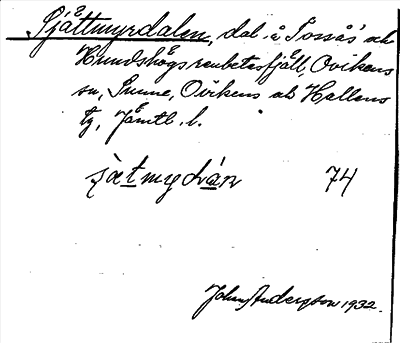 Sjåttmyrdalen, dal i Tossås' och
Hundshögs renbetesfjäll, Ovikens
sn, Sunne, Ovikens och Hallens
tg, Jämtl. l.
74
John Andersson 1932.